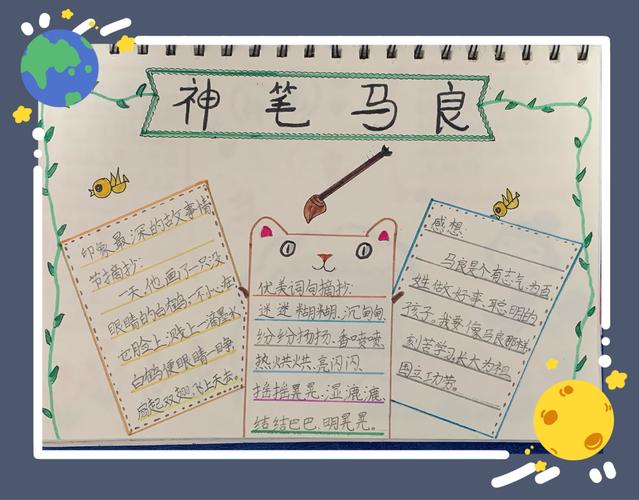 神笔马良
印象最深的故事情
节摘抄:
一天,他画了一只没
眼睛的白鹤,一不小心在
它脸上溅上一滴墨水
白鹤便眼睛一睁
扇起双翅飞上天去。
优美词句摘抄:
迷迷糊糊、沉甸甸
纷纷扬扬、香喷喷
热烘烘、亮闪闪、
摇摇晃晃、湿漉漉、
结结巴巴、明晃晃。
感想:
马良是个有志气,为百
姓做好事、聪明的
孩子。我要像马良那样
刻苦学习,长大为祖
国立功劳。